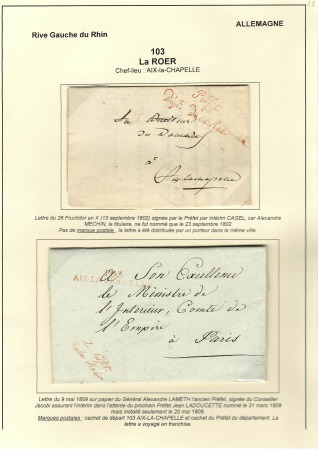 ALLEMAGNE
Rive Gauche du Rhin
103
La ROER
Chef-lieu : AIX-la-CHAPELLE
Préfet
Dépt.
du
à
Lettre du 26 Fructidor an X (13 septembre 1802) signée par le Préfet par intérim CAGEL, car Alexandre
MECHIN, le titulaire, ne fut nommé que le 23 septembre 1802
Pas de marque postale , la lettre a été distribuée par un porteur dans la même ville.
AIX-LA-CHAPELLE
A Son Excellence
le Ministre de
l'Interieur, Comte de
l'Empire
à Paris
Lettre du 9 mai 1809 sur papier du Général Alexandre LAMETH l'ancien Préfet, signée du Conseiller
Jacobi assurant l'intérim dans l'attente du prochain Préfet Jean LADOUCETTE nommé le 31 mars 1809
mais installé seulement le 20 mai 1809.
Marques postales : cachet de départ 103 AIX-LA-CHAPELLE et cachet du Préfet du département. La
lettre a voyagé en franchise.